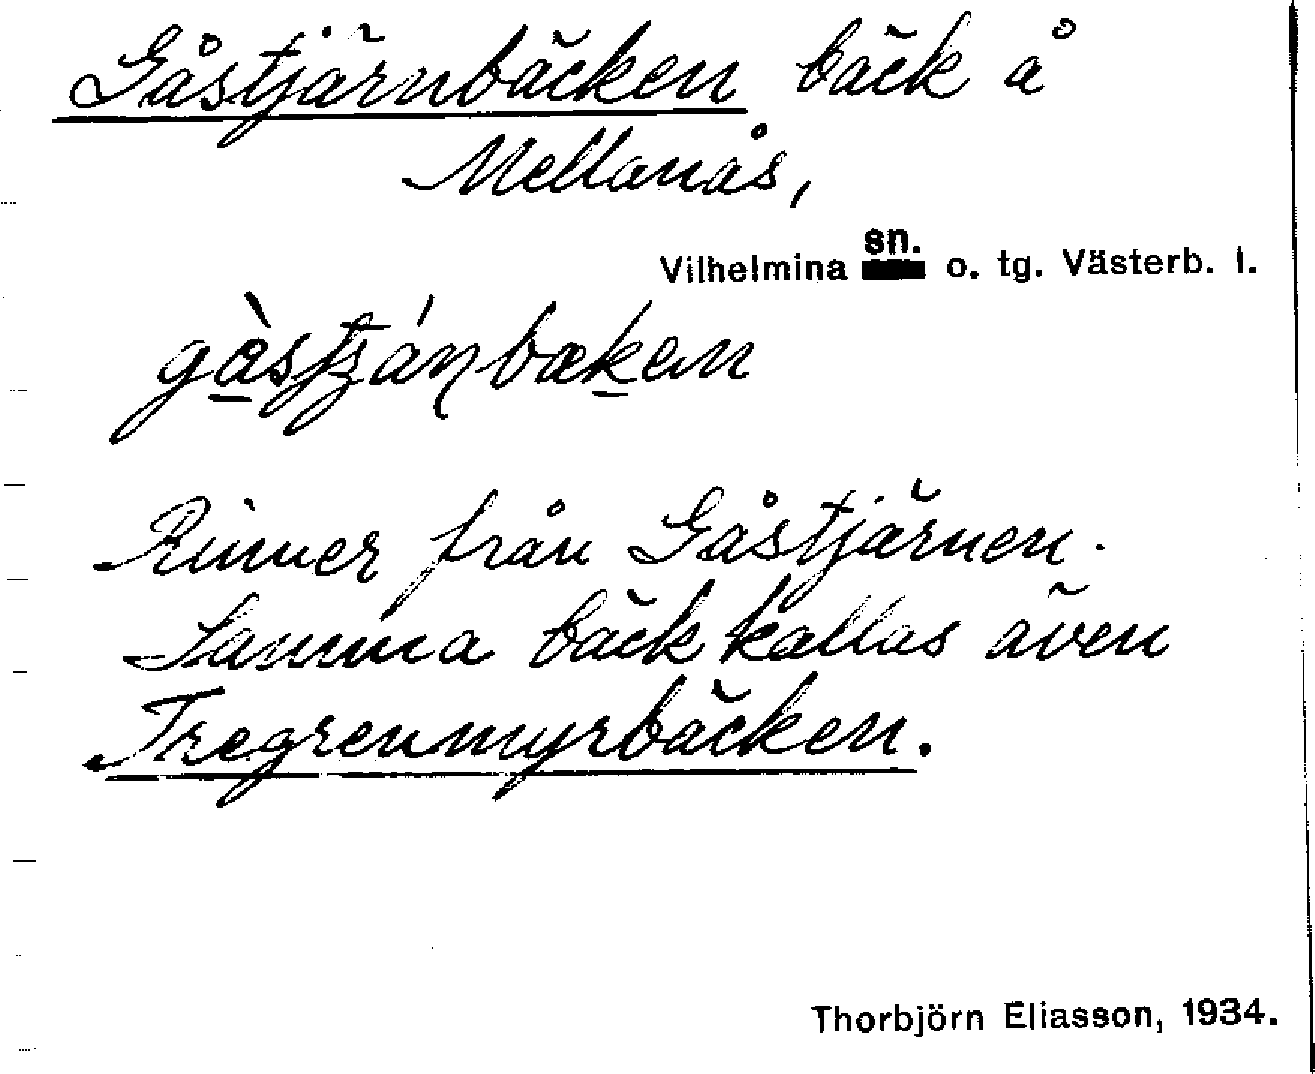 Gåstjärnbäcken bäck å
Mellanås,
Vilhelmina sn. o. tg. Västerb. l.
Rinner från Gåstjärnen.
Samma bäck kallas även
Tregrenmyrbäcken.
Thorbjörn Eliasson, 1934.